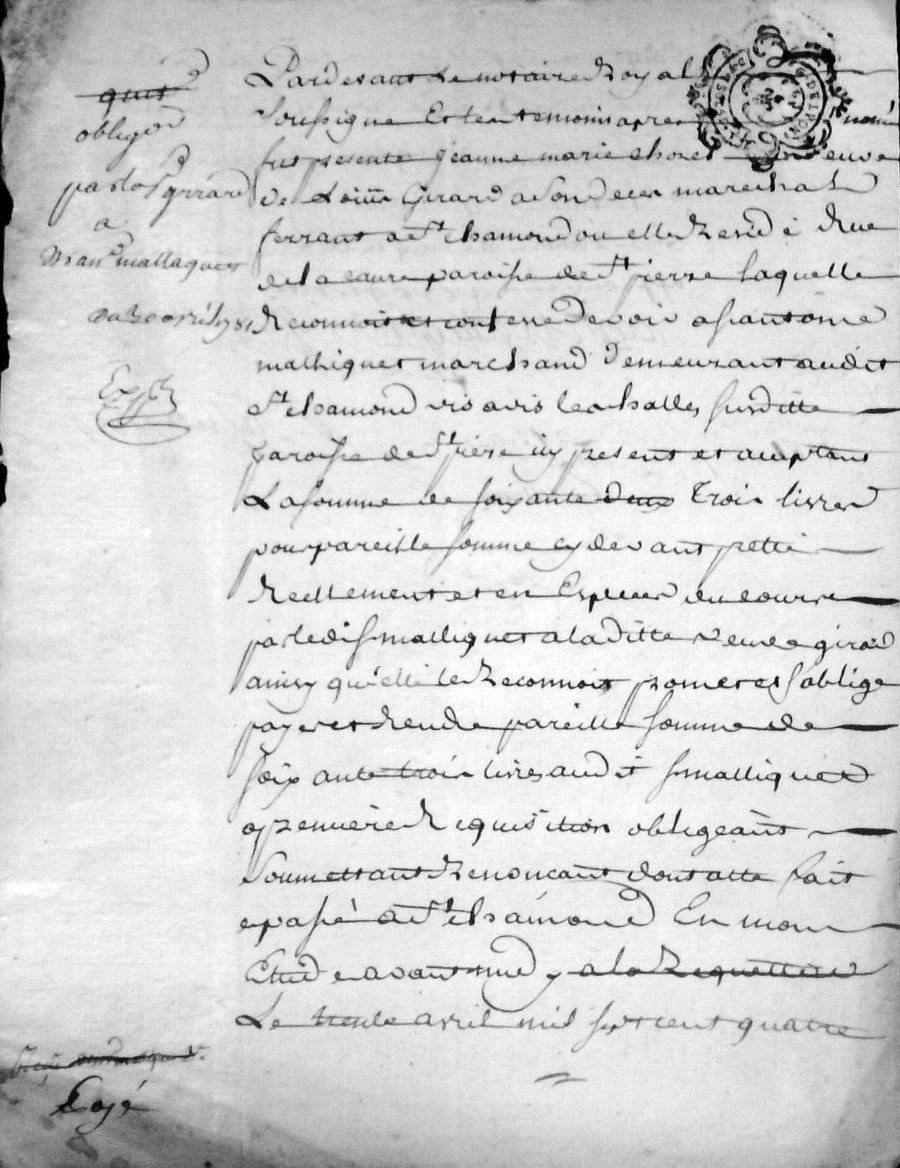 quit
obligéon
par la Ve girard
a
mathiquet
du 30 avril 1781
Exp.
Pardevant Le notaire Royal
Soussigné Et les temoins apres nomé
fut presente jeanne marie veuve
de Girard a son deces marechal
ferrant a St chamond ou elle Reside Rue
de la paroisse de St pierre laquelle
Reconnoit et confesse devoir a
mathiquet marchand demeurant audit
St chamond vis avis les halles susditte
paroisse de St piere cy present et aceptant
La somme de soixante deux Trois livres
pour pareille somme cy devant pretté
Reellement et en Especes du cours
par ledit Sr malliquet a la ditte veuve girard
ainsy qu'elle le Reconnoit promet et s'oblige
payer et Rendre pareille somme de
soixante trois livres audit Sr malliquet
a premiere Requisition obligeant
Soumettant Renonçant dont acte fait
et passé a St chamond En mon
Etude avant midy a la Requettere
Le trente avril mil sept cent quatre
Loyé